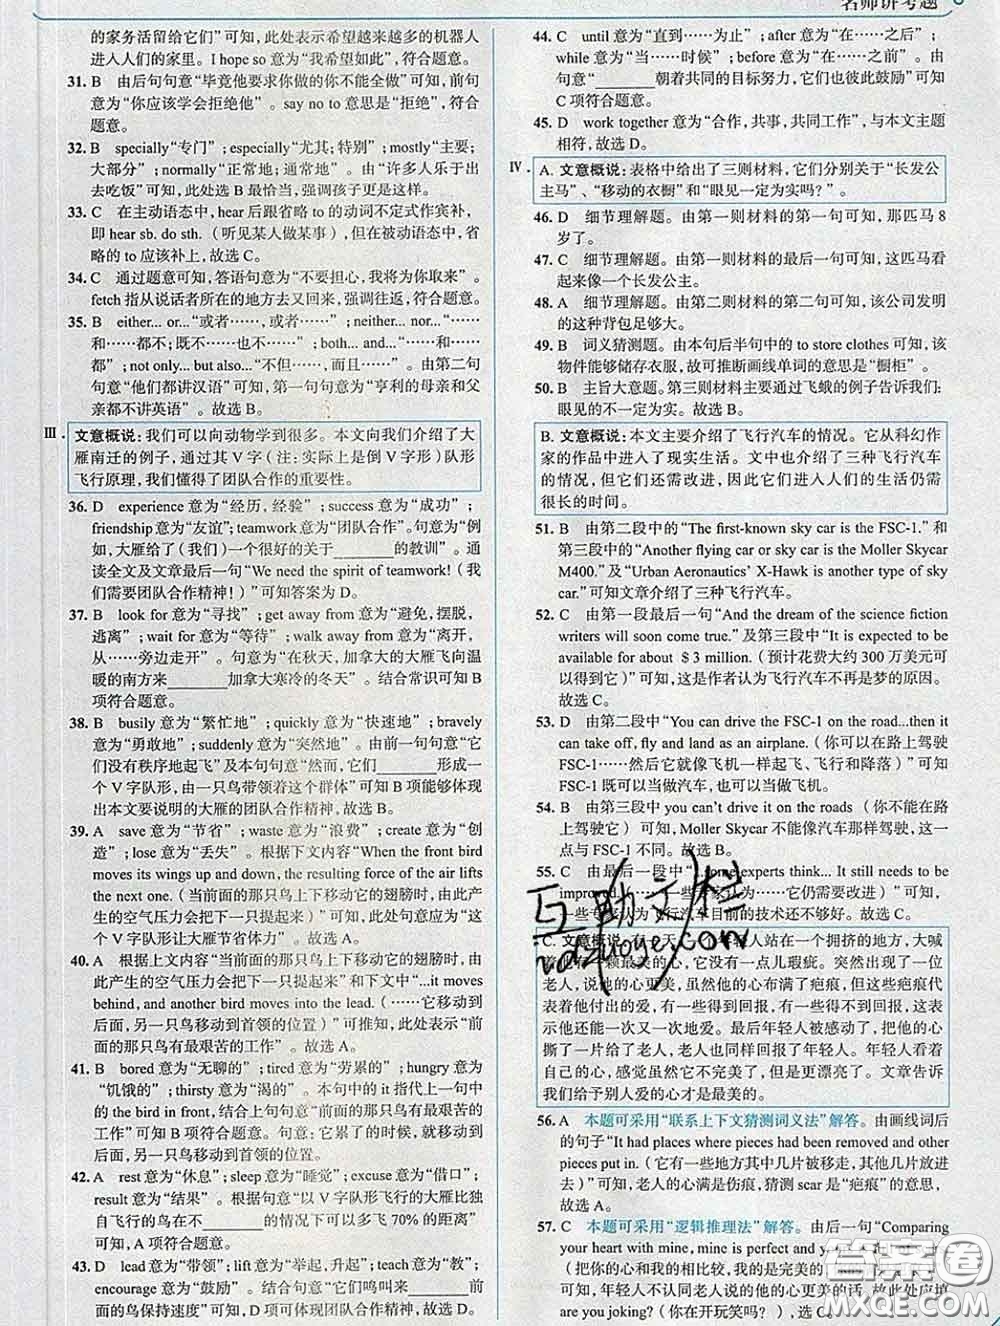 名师讲考题
的家务活留给它们”可知，此处表示希望越来越多的机器人
进入人们的家里。I hope so 意为“我希望如此”，符合题意。
31. B 由后句句意“毕竟他要求你做的你不能全做”可知，前句
意为“你应该学会拒绝他”。say no to 意思是“拒绝”，符合
题意。
32. B specially“专门”；especially“尤其；特别”；mostly“主要；
大部分”；normally“正常地；通常地”。由“许多人乐于出
去吃饭”可知，此处选 B 最恰当，强调孩子更是这样。
33. C 在主动语态中，hear 后跟省略 to 的动词不定式作宾补，
即 hear sb. do sth.（听见某人做某事），但在被动语态中，省
略的 to 应该补上，故选 C。
34. C 通过题意可知，答语句意为“不要担心，我将为你取来”。
fetch 指从说话者所在的地方去又回来，强调往返，符合题意。
35. B either... or...“或者……，或者……”；neither... nor...“……
和……都不；既不……也不……”；both... and...“……和……
都”；not only... but also...“不但……，而且……”。由第二句
句意“他们都讲汉语”可知，第一句句意为“亨利的母亲和父
亲都不讲英语”。故选 B。
Ⅲ. 文意概说：我们可以向动物学到很多。本文向我们介绍了大
雁南迁的例子，通过其 V 字（注：实际上是倒 V 字形）队形
飞行原理，我们懂得了团队合作的重要性。
36. D experience 意为“经历，经验”；success 意为“成功”；
friendship 意为“友谊”；teamwork 意为“团队合作”。句意为“例
如，大雁给了（我们）一个很好的关于________的教训”。通
读全文及文章最后一句“We need the spirit of teamwork!（我
们需要团队合作精神！）”可知答案为 D。
37. B look for 意为“寻找”；get away from 意为“避免，摆脱，
逃离”；wait for 意为“等待”；walk away from 意为“离开，
从……旁边走开”。句意为“在秋天，加拿大的大雁飞向温
暖的南方来________加拿大寒冷的冬天”。结合常识可知 B
项符合题意。
38. B busily 意为“繁忙地”；quickly 意为“快速地”；bravely
意为“勇敢地”；suddenly 意为“突然地”。由前一句句意“它
们没有秩序地起飞”及本句句意“然而，它们________形成一
个 V 字形，由一只鸟带领着这个群体”可知 B 项能够体现
出本文要说明的大雁的团队合作精神，故选 B。
39. A save 意为“节省”；waste 意为“浪费”；create 意为“创
造”；lose 意为“丢失”。根据下文内容“When the front bird
moves its wings up and down, the resulting force of the air lifts
the next one.（当前面的那只鸟上下移动它的翅膀时，由此产
生的空气压力会把下一只提起来）”可知，此处句意应为“这
个 V 字队形让大雁节省体力”。故选 A。
40. A 根据上文内容“当前面的那只鸟上下移动它的翅膀时，
由此产生的空气压力会把下一只提起来”和下文中“...it moves
behind, and another bird moves into the lead.（……它移动到
后面，另一只鸟移动到首领的位置）”可推知，此处表示“前
面的那只鸟有最艰苦的工作”。故选 A。
41. B bored 意为“无聊的”；tired 意为“劳累的”；hungry 意为
“饥饿的”；thirsty 意为“渴的”。本句中的 it 指代上一句中
的 the bird in front，结合上句句意“前面的那只鸟有最艰苦的
工作”可知 B 项符合题意。句意：它累了的时候，就移动到
后面，另一只鸟移动到首领的位置。
42. A rest 意为“休息”；sleep 意为“睡觉”；excuse 意为“借口”；
result 意为“结果”。根据句意“以 V 字队形飞行的大雁比独
自飞行的鸟在不________的情况下可以多飞 70% 的距离”
可知，A 项符合题意。
43. D lead 意为“带领”；lift 意为“举起，升起”；teach 意为“教”；
encourage 意为“鼓励”。结合句意“它们鸣叫来________前
面的鸟保持速度”可知 D 项可体现团队合作精神，故选 D。
44. C until 意为“直到……为止”；after 意为“在……之后”；
while 意为“当……时候”；before 意为“在……之前”。由
句意“________朝着共同的目标努力，它们也彼此鼓励”可知
C 项符合题意。
45. D work together 意为“合作，共事，共同工作”，与本文主题
相符，故选 D。
Ⅳ. A. 文意概说：表格中给出了三则材料，它们分别关于“长发公
主马”、“移动的衣橱”和“眼见一定为实吗？”。
46. D 细节理解题。由第一则材料的第一句可知，那匹马 8
岁了。
47. C 细节理解题。由第一则材料的最后一句可知，这匹马看
起来像一个长发公主。
48. A 细节理解题。由第二则材料的第二句可知，该公司发明
的这种背包足够大。
49. B 词义猜测题。由本句后半句中的 to store clothes 可知，该
物件能够储存衣服，故可推断画线单词的意思是“橱柜”。
50. B 主旨大意题。第三则材料主要通过飞蛾的例子告诉我们：
眼见的不一定为实。故选 B。
B. 文意概说：本文主要介绍了飞行汽车的情况。它从科幻作
家的作品中进入了现实生活。文中介绍了三种飞行汽车
的情况，但它们还需改进，因此它们进入人们的生活仍需
很长的时间。
51. B 由第二段中的“The first-known sky car is the FSC-1.”和
第三段中的“Another flying car or sky car is the Moller Skycar
M400.”及“Urban Aeronautics’ X-Hawk is another type of sky
car.”可知文章介绍了三种飞行汽车。
52. C 由第一段最后一句“And the dream of the science fiction
writers will soon come true.”及第三段中“It is expected to be
available for about ＄3 million.（预计花费大约 300 万美元可
以得到它）”可知，这是作者认为飞行汽车不再是梦的原因。
故选 C。
53. D 由第二段中“You can drive the FSC-1 on the road...then it
can take off, fly and land as an airplane.（你可以在路上驾驶
FSC-1……然后它就像飞机一样起飞、飞行和降落）”可知
FSC-1 既可以当做汽车，也可以当做飞机。
54. B 由第三段中 you can’t drive it on the roads（你不能在路
上驾驶它）可知，Moller Skycar 不能像汽车那样驾驶，这一
点与 FSC-1 不同。故选 B。
55. C 由最后一段中“...some experts think... It still needs to be
improved.（一些专家认为……它仍需要改进）”可知，
一些专家认为飞行汽车目前的技术还不够好。故选 C。
C. 文意概说：有一天，一个年轻人站在一个拥挤的地方，大喊
着他有一颗最美的心，它没有一点儿瑕疵。突然出现了一位
老人，说他的心更美，虽然他的心布满了疤痕，但这些疤痕代
表着他付出的爱，有一些得到回报，有一些得不到回报，这表
示他还能一次又一次地爱。最后年轻人被感动了，把他的心
撕了一片给了老人，老人也同样回报了年轻人。年轻人看着
自己的心，感觉虽然它不完美了，但是更漂亮了。文章告诉
我们给予别人爱的心才是最美的。
56. A 本题可采用“联系上下文猜测词义法”解答。由画线词后
的句子“It had places where pieces had been removed and other
pieces put in.（它有一些地方其中几片被移走，其他几片放进
去）”可知，老人的心满是伤痕，猜测 scar 是“疤痕”的意思，
故选 A。
57. C 本题可采用“逻辑推理法”解答。由后一句“Comparing
your heart with mine, mine is perfect and
（把你的心和我的相比较，我的
可知，年轻人不同意老人说的他的心更美的话，故此处应填
are you joking?（你在开玩笑吗？），选 C。
互助文档
答案圈
MXQE.COM